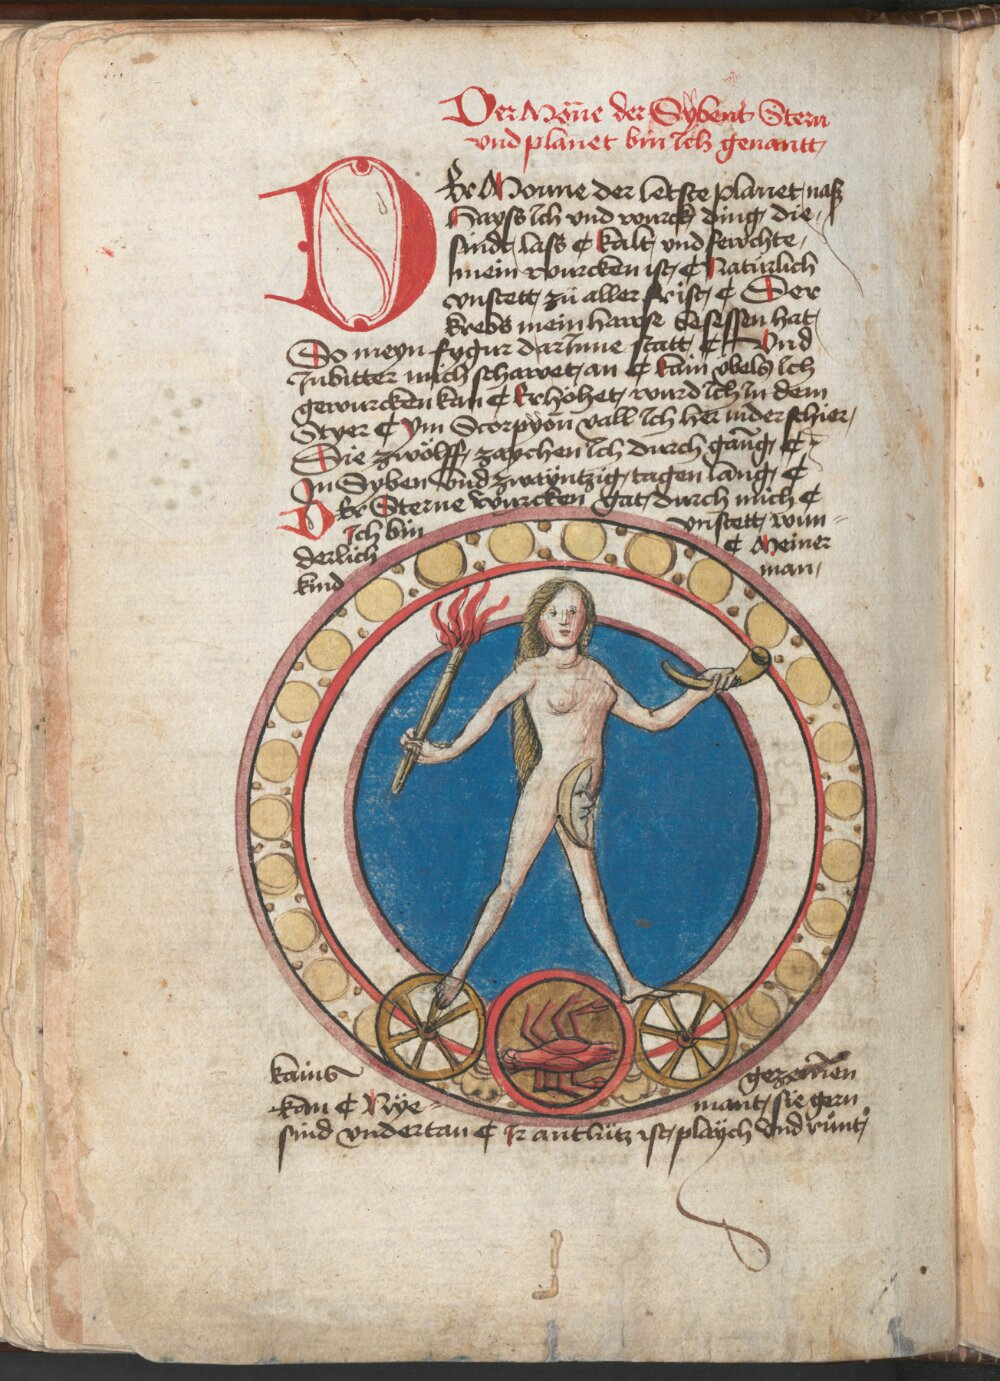 Der Mone der Sybent Stern
vnd planet bin ich genantt
Der Monne der letste planet nass
Hayss ich vnd wurck ding die
sindt lass ¢ kalt vnd fewchte
mein wurcken ist ¢ Natürlich
vnstett zü aller frist ¢ Der
krebs mein hawse besessen hat
So meyn fygur darinne statt ¢ Vnd
Jubitter mich schawet an ¢ kain vbels ich
gewurcken kan ¢ Erhöhet wurd ich in dem
Styer ¢ Ym Scorpyon vall ich her nider schier
Die zwölff zaychen ich durch gang ¢
In Syben vnd zwayntzig tagen lang ¢
Der Sterne würcken gat durch mich ¢
Ich bin vnstett wun=
derlich ¢ Meiner
kind man
kains gezemen
kan ¢ Nye= mant sie gern
sind vndertan ¢ Ir antlütz ist playch vnd runt